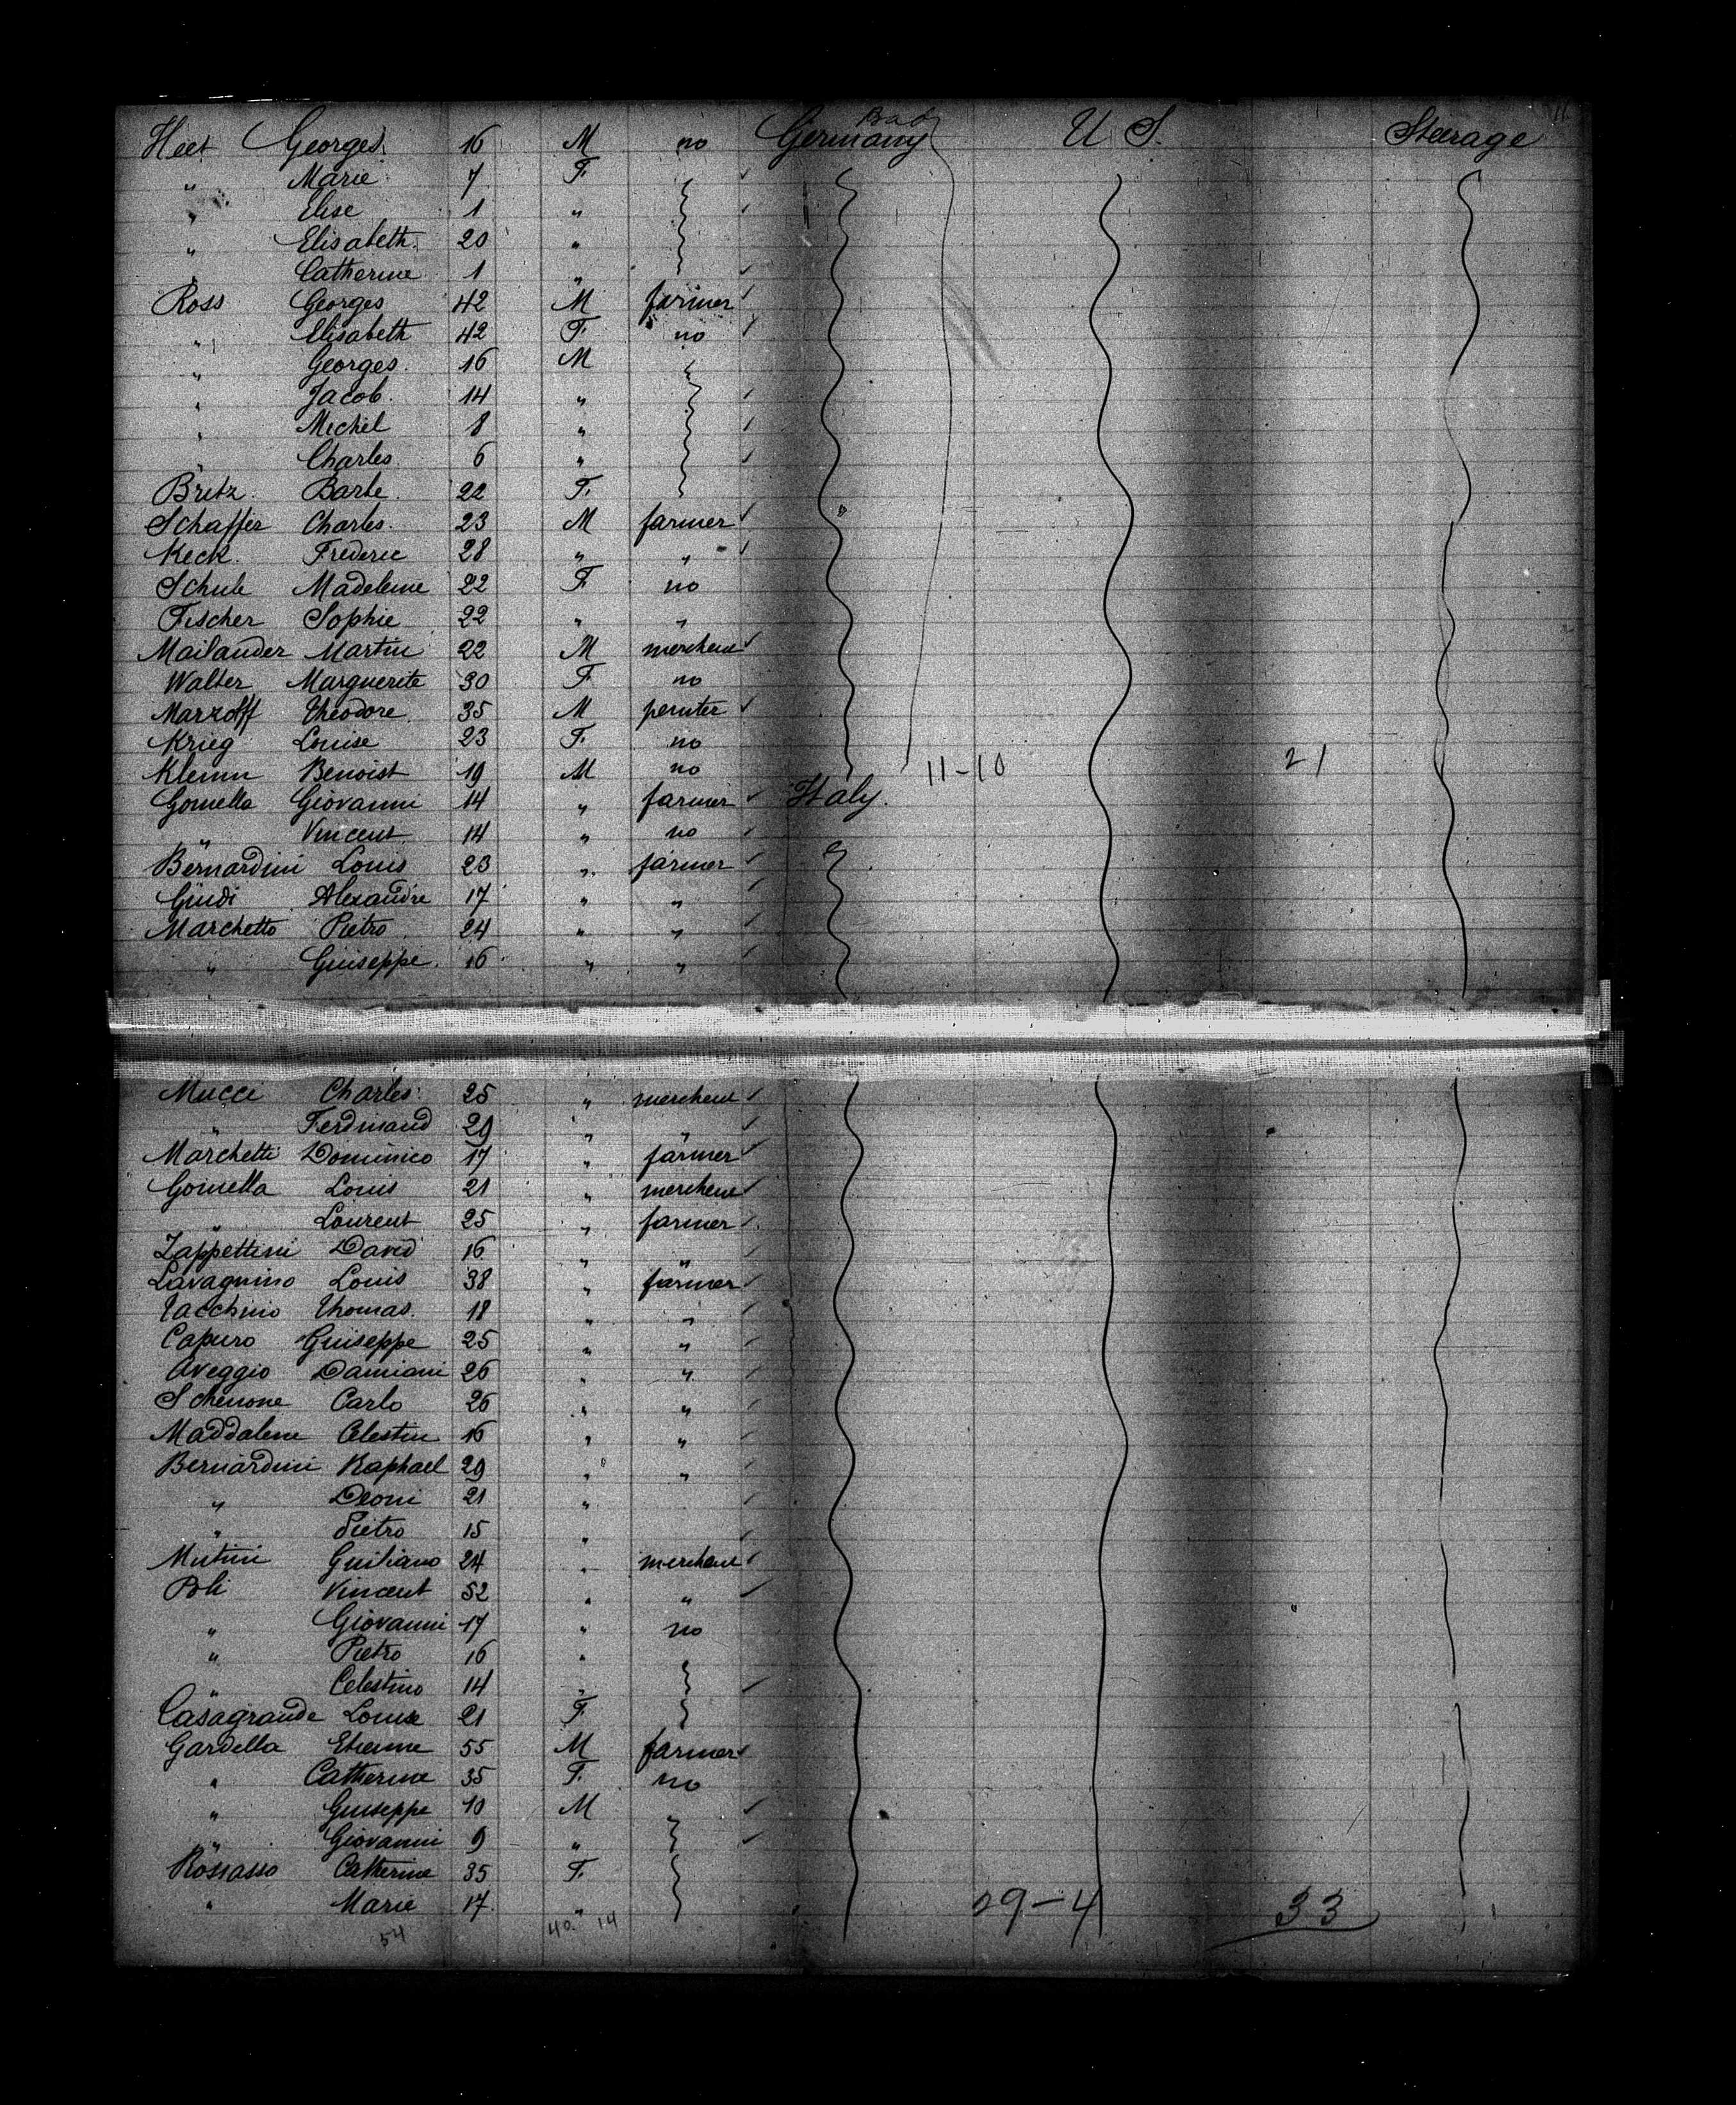 Heet Georges 16 M no Germany Bad U S. Stearage
" Marie 7 F.
" Elise 1 "
" Elisabeth. 20 "
Catherine 1 "
Ross Georges 42 M farmer
" Elisabeth 42 F. no
" Georges. 16 M
" Jacob. 14 "
" Michel 8 "
" Charles. 6 "
Bretz. Barbe. 22 F.
Schaffer Charles. 23 M farmer
Keck. Frederic 28 " "
Schule Madeleine 22 F. no
Fischer Sophie 22 " "
Mailander Martin 22 M merchent
Walter Marguerite 30 F. no
Marzolff Theodore. 35 M penter
Krieg Louise 23 F. no
Klemm Benoist 19 M no 11-10 21
Gomella Giovanni 14 " farmer Italy.
" Vincent 14 " no
Bernardini Louis 23 " farmer
Guidi Alexandre 17 " "
Marchetto Pietro 24 " "
" Guiseppe. 16 " "
Mucci Charles 25 " merchent
" Ferdinand 29 " "
Marchetti Dominico 17 " farmer
Gomella Louis 21 " merchent
" Laurent 25 " farmer
Zappettini David 16 " "
Lavagnino Louis 38 " farmer
Tacchino Thomas. 18 " "
Capuro Guiseppe 25 " "
Aveggio Damiani 26 " "
Schenone Carlo 26 " "
Maddalene Celestin 16 " "
Bernardini Raphael 29 " "
" Deoni 21 "
" Pietro 15 "
Mutini Guiliano 24 " merchent
Poli Vincent 52 " "
" Giovanni 17 " no
" Pietro 16 "
" Celestino 14 "
Casagrande Louise 21 F.
Gardella Etienne 55 M farmer
" Catherine 35 F. no
" Guiseppe 10 M
" Giovanni 9 "
Rossasso Catherine 35 F.
" Marie 17. " 29-4 33
54 40. 14